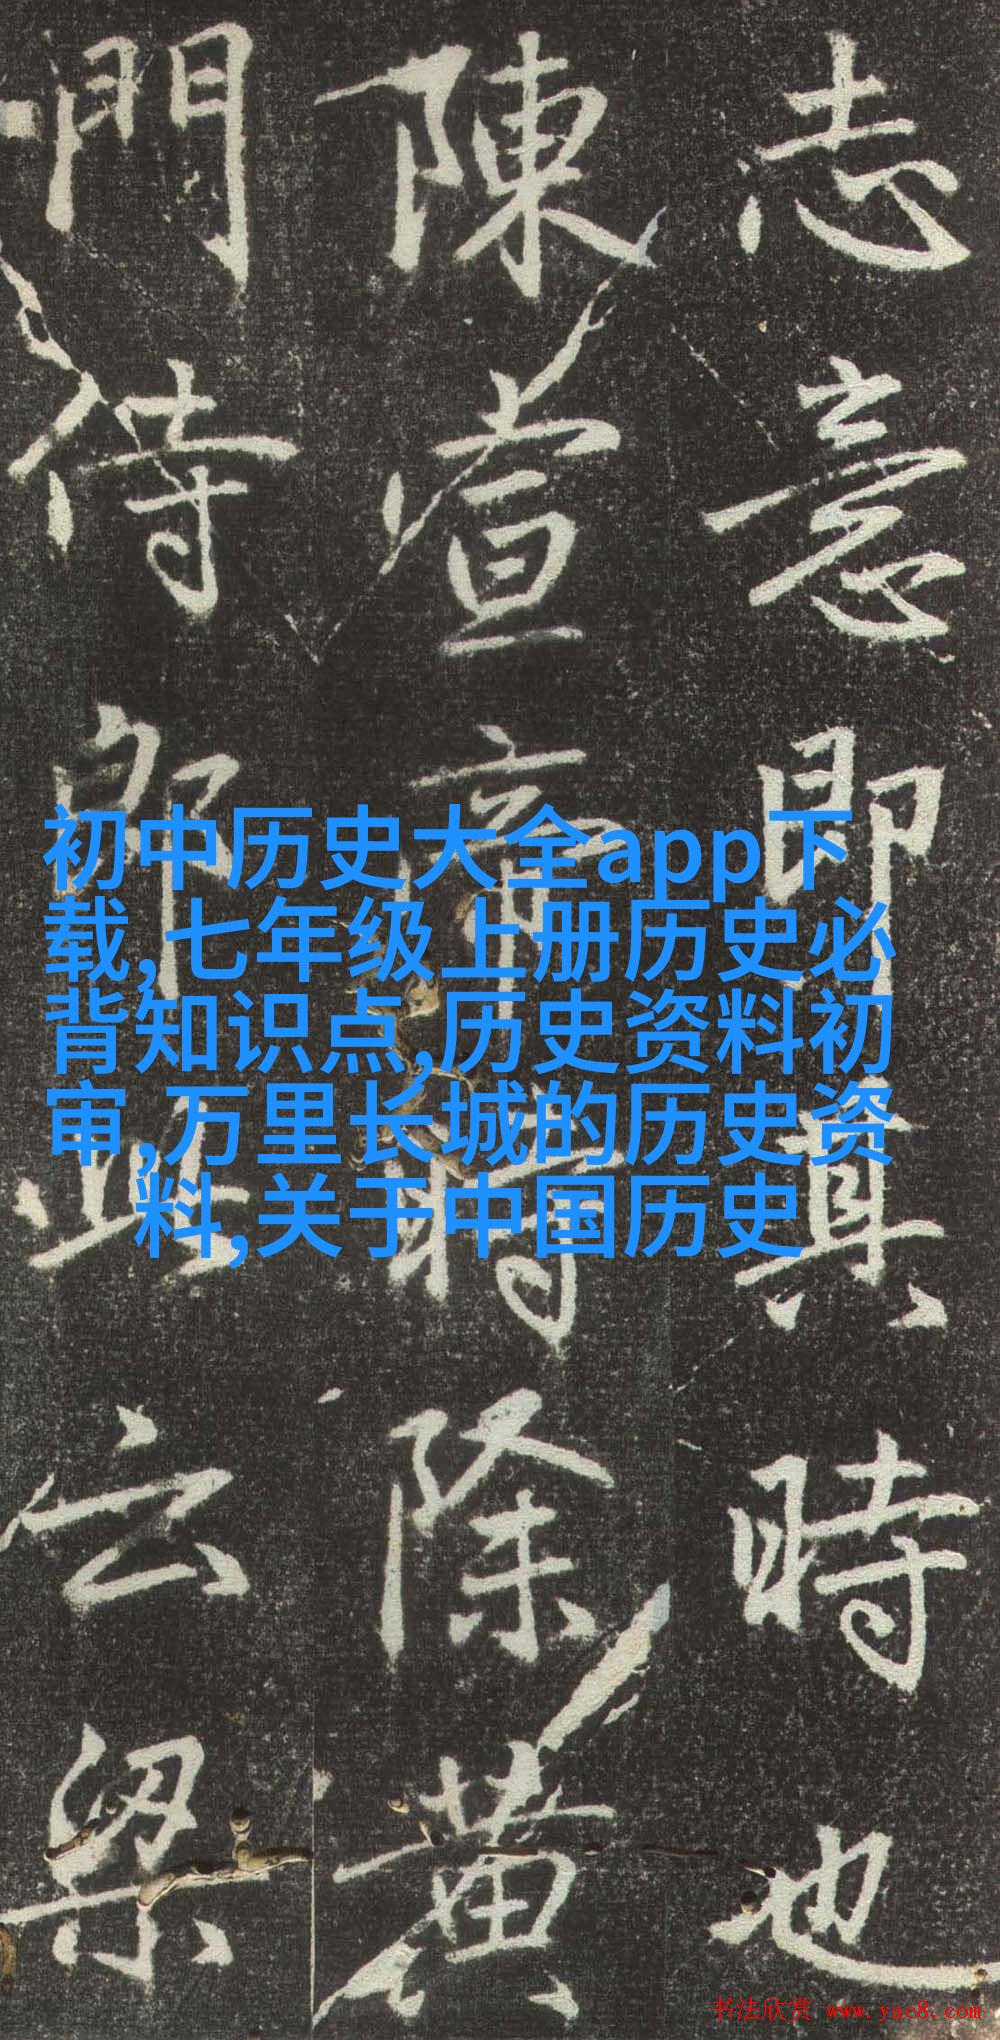 志意即真時也
陳宣帝時除黄
門侍郎此云梁
初中历史大全app下
载,七年级上册历史必
背知识点,历史资料初
审,万里长城的历史资
料,关于中国历史
书法欣赏 www.yac8.com